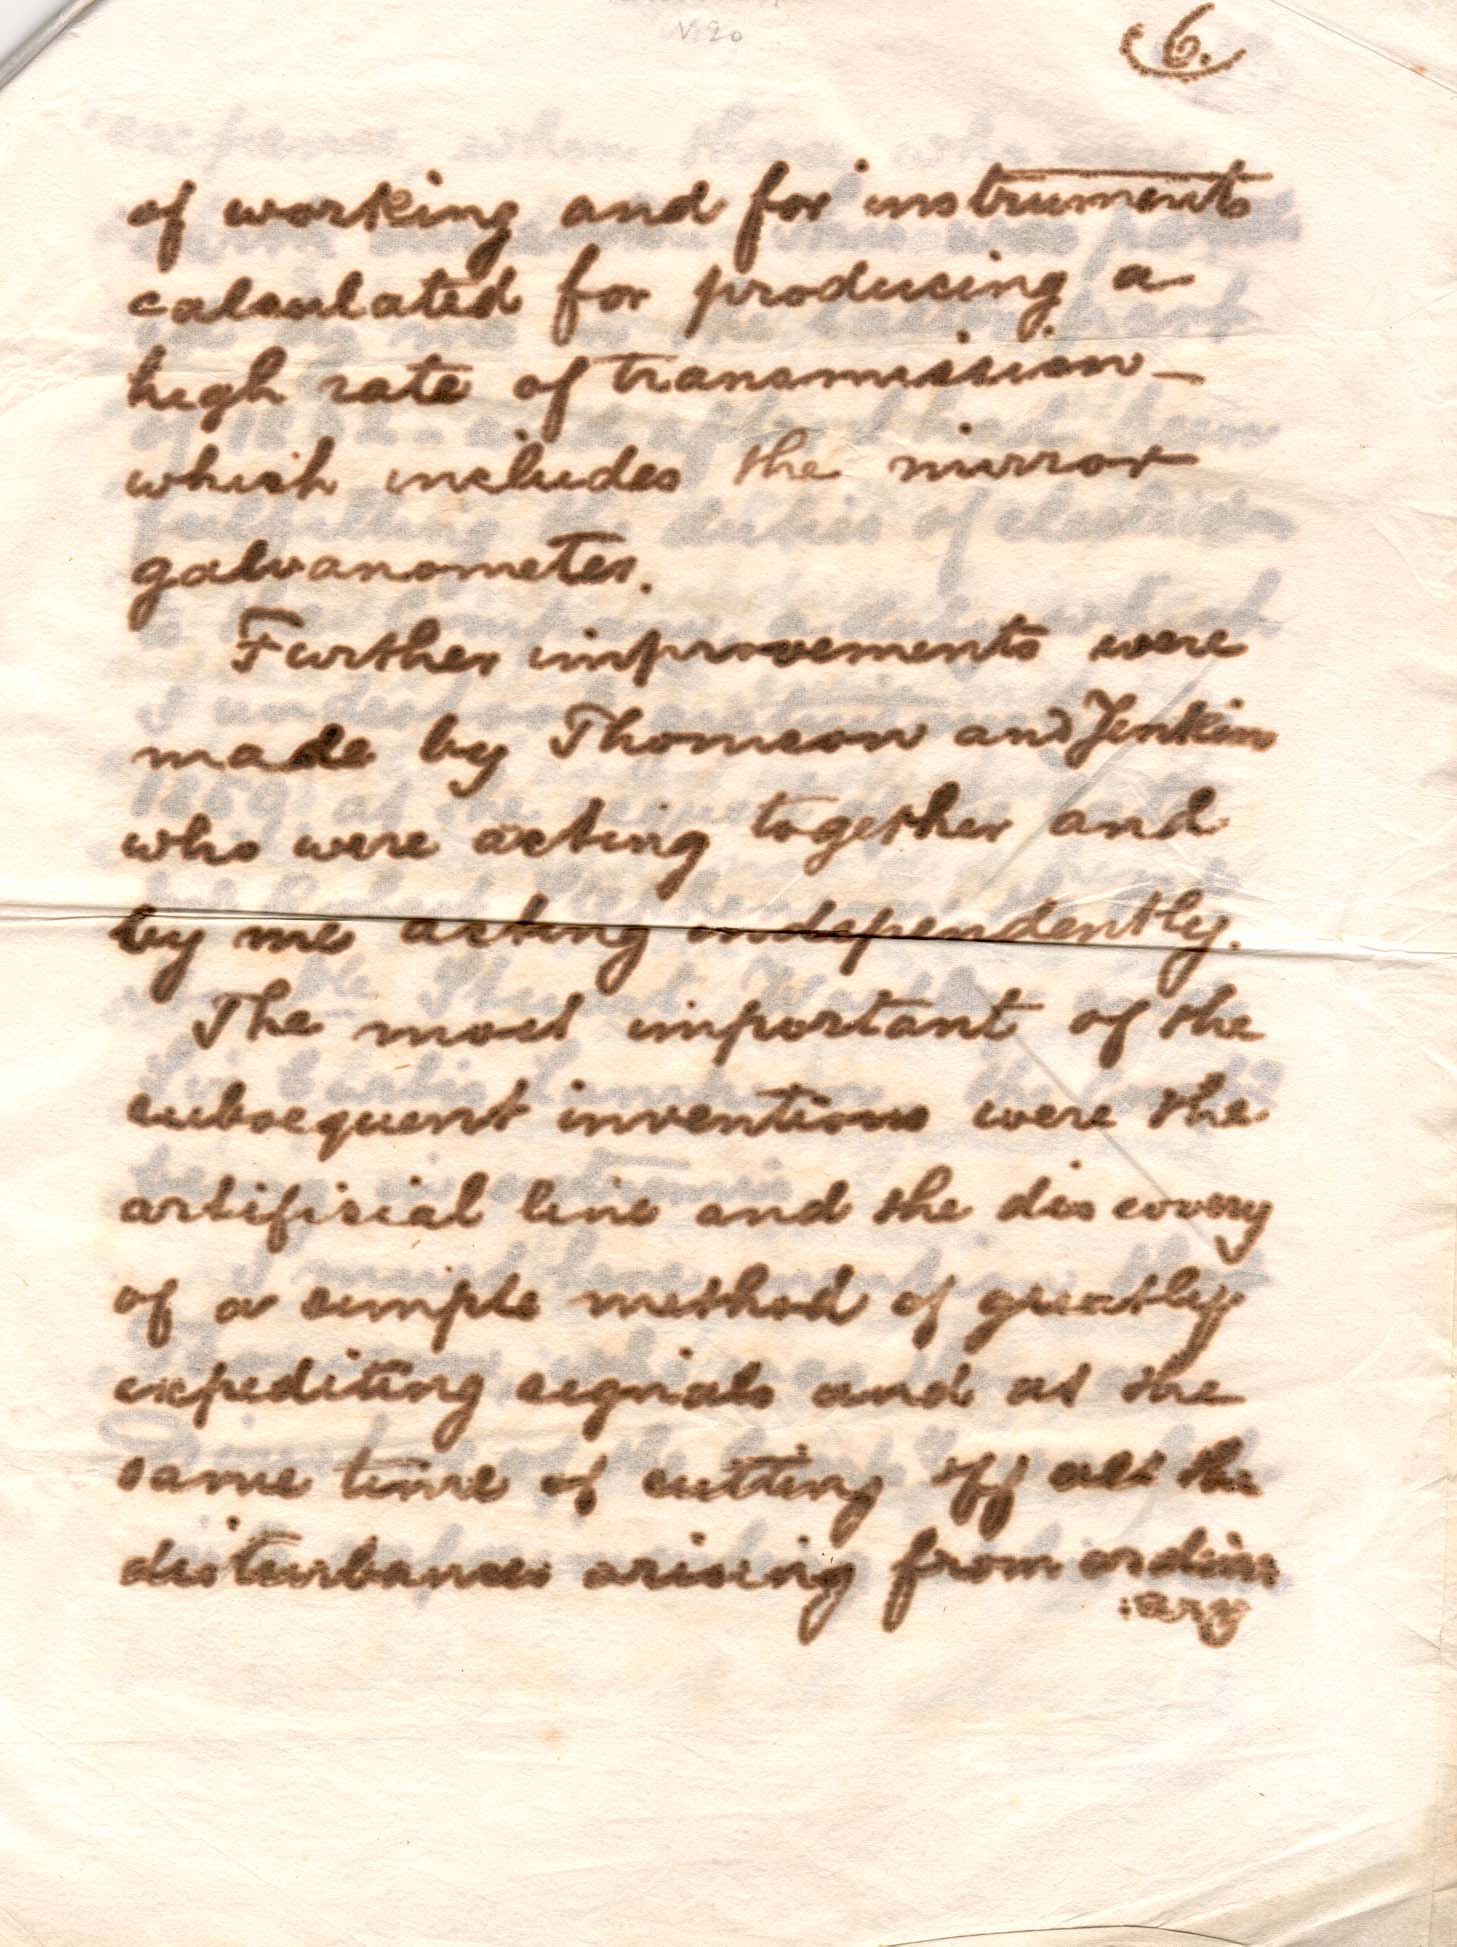 6.
of working and for instruments
calculated for producing a
high rate of transmission –
which includes the mirror
galvanometer.
Further improvements were
made by Thomson and Jenkin
who were acting together and
by me acting independently.
The most important of the
subsequent inventions were the
artificial line and the discovery
of a simple method of greatly
expediting signals and at the
same time of cutting off all the
disturbances arising from ordin:
:ary